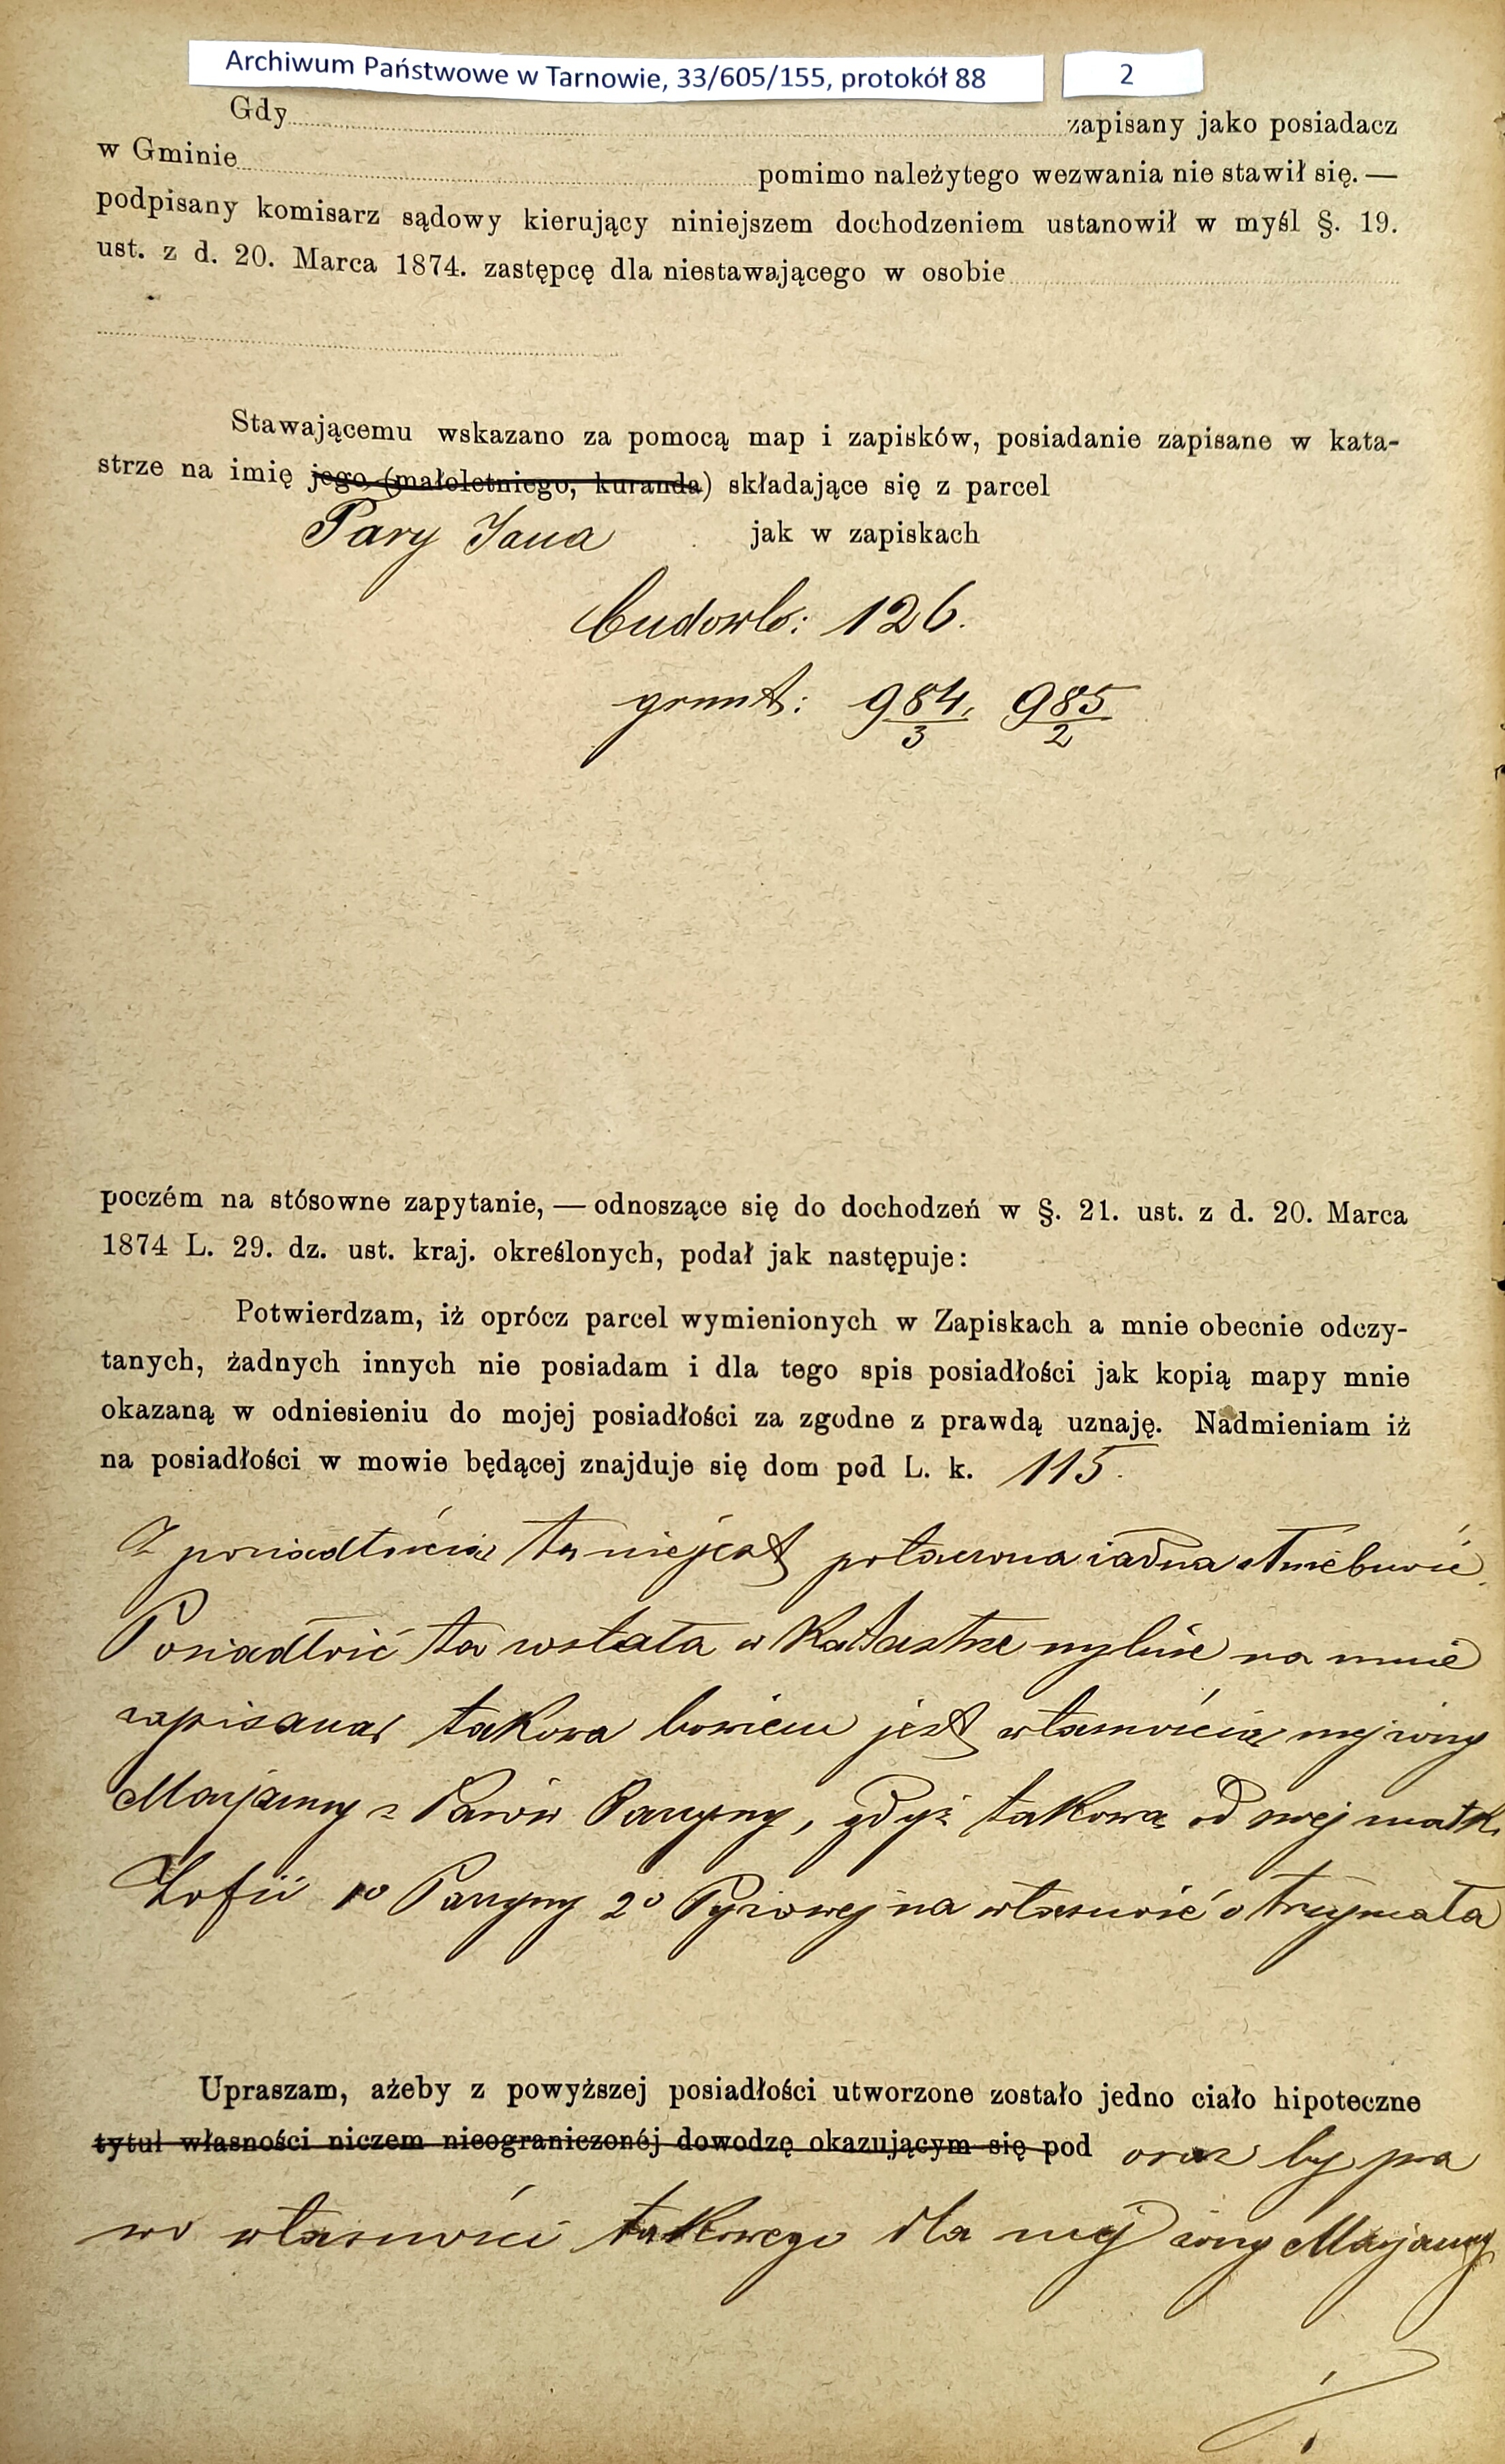 Archiwum Państwowe w Tarnowie, 33/605/155, protokół 88
2
Gdy zapisany jako posiadacz
w Gminie pomimo należytego wezwania nie stawił się. —
podpisany komisarz sądowy kierujący niniejszem dochodzeniem ustanowił w myśl §. 19.
ust. z d. 20. Marca 1874. zastępcę dla niestawającego w osobie
Stawającemu wskazano za pomocą map i zapisków, posiadanie zapisane w kata-
strze na imię jego (małoletniego, kuranda) składające się z parcel
Pary Jana jak w zapiskach
budowl: 126.
grunt: 984/3, 985/2
poczém na stósowne zapytanie, — odnoszące się do dochodzeń w §. 21. ust. z d. 20. Marca
1874 L. 29. dz. ust. kraj. określonych, podał jak następuje:
Potwierdzam, iż oprócz parcel wymienionych w Zapiskach a mnie obecnie odczy-
tanych, żadnych innych nie posiadam i dla tego spis posiadłości jak kopią mapy mnie
okazaną w odniesieniu do mojej posiadłości za zgodne z prawdą uznaję. Nadmieniam iż
na posiadłości w mowie będącej znajduje się dom pod L. k. 115.
Z posiadłością tą nie jest połączona żadna służebność
Posiadłość ta została w Katastrze mylnie na mnie
zapisaną, takowa bowiem jest własnością mej żony
Maryanny z Parów Paryny, gdyż takową od swej matki
Zofii 1º Paryny 2º na własność otrzymała
Upraszam, ażeby z powyższej posiadłości utworzone zostało jedno ciało hipoteczne
tytuł własności niczem nieograniczonéj dowodzę okazującym się pod oraz by pra
wo własności takowego dla mej żony Maryanny